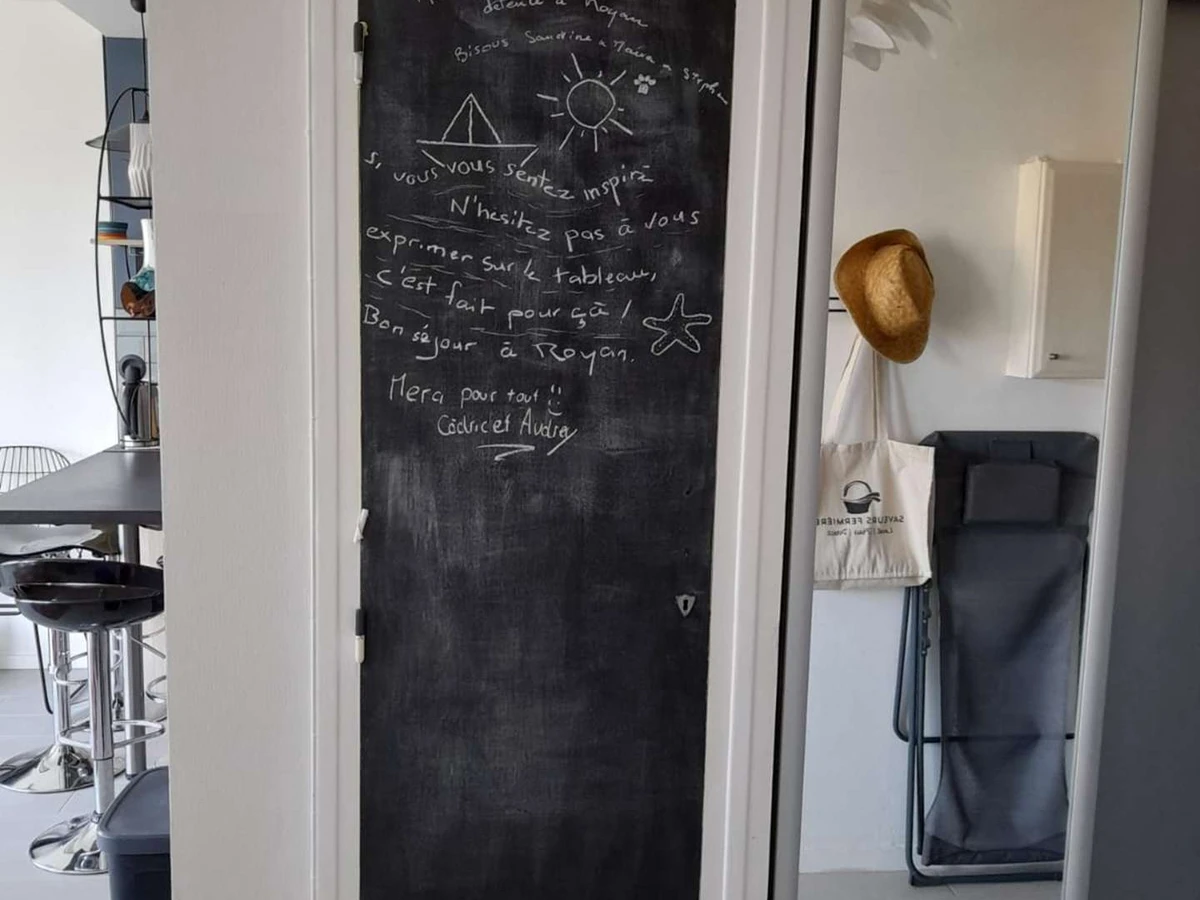 détente à Royan
Bisous Sandrine
Si vous vous sentez inspiré
N'hesitez pas à vous
exprimer sur le tableau,
c'est fait pour çà !
Bon séjour à Royan.
Merci pour tout
Cédric et Audrey
SAVEURS FERMIÈRE